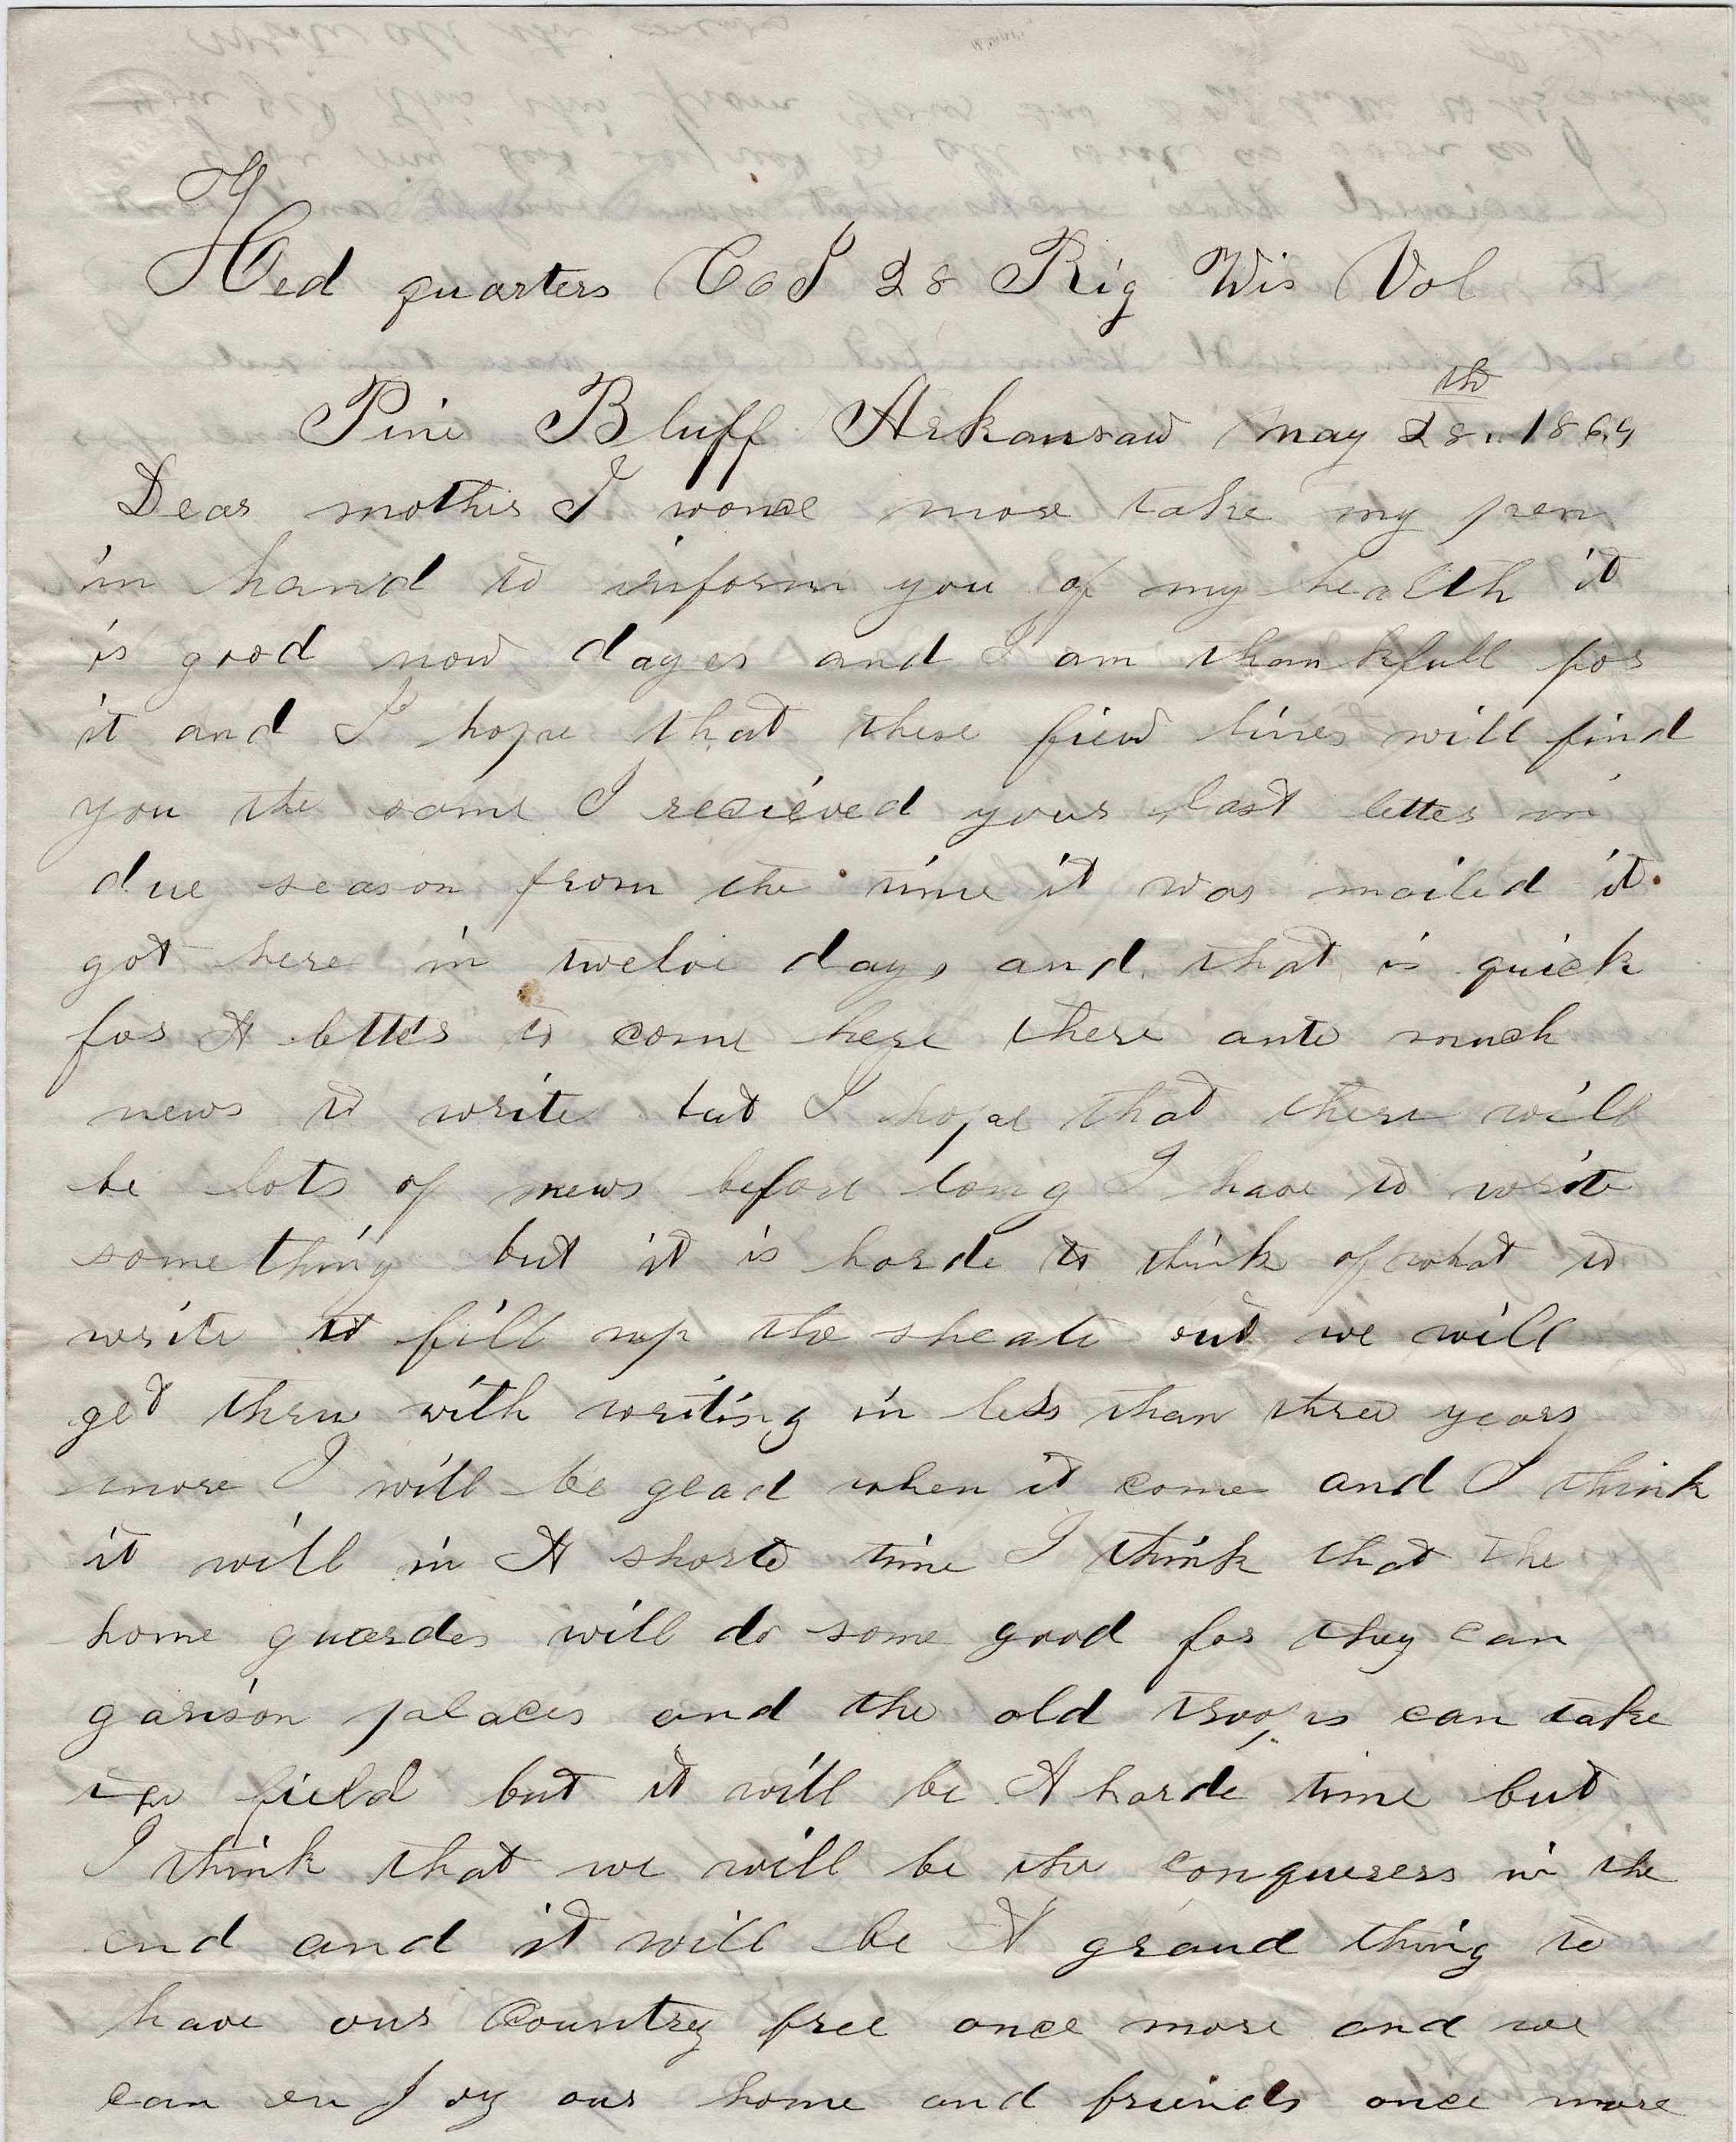 Hed quarters Co I 28 Rig Wis Vol
Pine Bluff Arkansaw May 28th 1864
Dear mother I wonce more take my pen
in hand to inform you of my health it
is good now dayes and I am thankfull for
it and I hope that these fiew lines will find
you the same I recieved your last letter in
due season from the time it was mailed it
got here in twelve days and that is quick
for A letter to come here there ante much
news to write but I hope that there will
be lots of news before long I have to write
something but it is harde to think of what to
write to fill up the sheate out we will
get thru with writing in less than three years
more I will be glad when it come and I think
it will in A shorte time I think that the
home guardes will do some good for they can
garison palaces and the old troops can take
the field but it will be A harde time but
I think that we will be the conquerers in the
end and it will be A grand thing to
have our Country free once more and we
can enJoy our home and friends once more